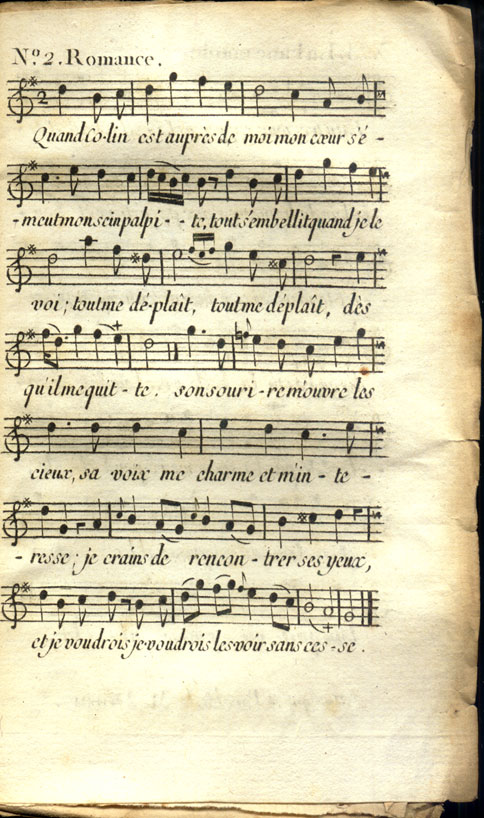 N.º 2. Romance.
Quand Co-lin est auprès de moi mon cœur s'é -
- meut mon sein palpi - - te, tout s'embellit quand je le
voi ; tout me dé-plaît, tout me déplaît, dès
qu'il me quit - te. son souri - re m'ouvre les
cieux, sa voix me charme et m'in - te -
- resse ; je crains de rencon - trer ses yeux,
et je voudrois je voudrois les voir sans ces - se.